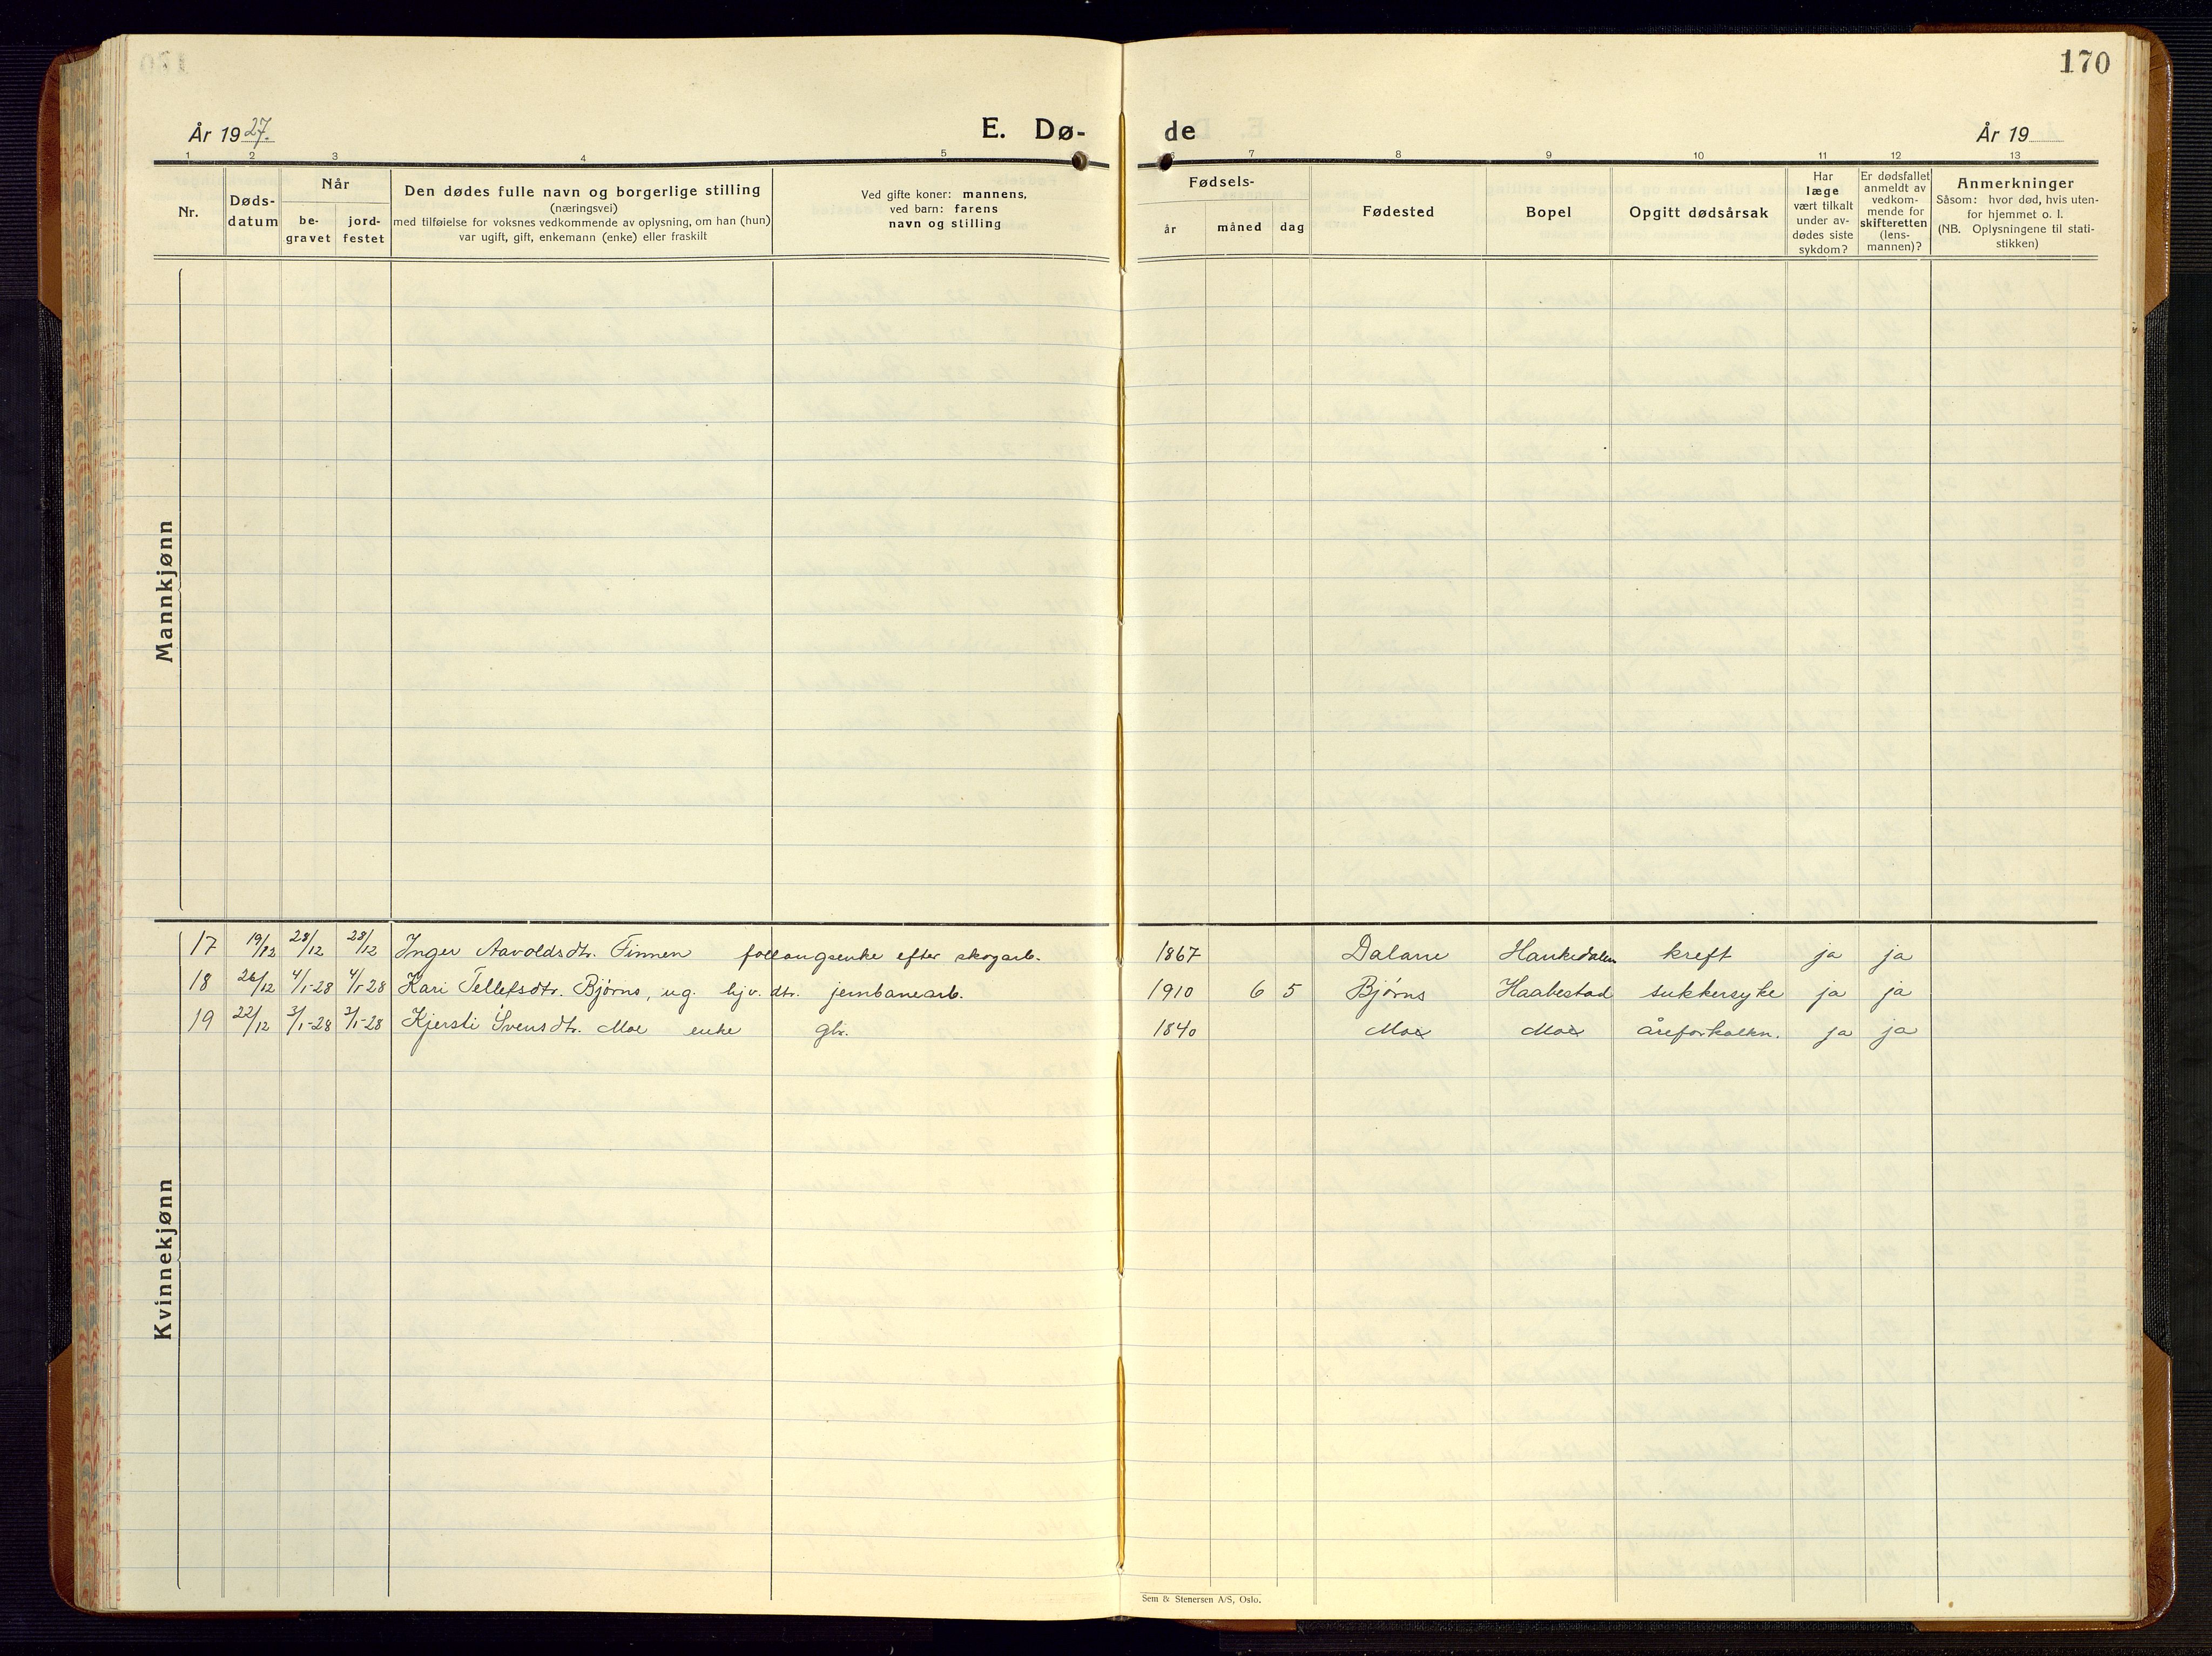 170
År 1927.
E. Dø-
de
År 19
1 2 3 4 5 6 7 8 9 10 11 12 13
Nr.
Døds-
datum
Når
be-
gravet
jord-
festet
Den dødes fulle navn og borgerlige stilling
(næringsvei)
med tilføielse for voksnes vedkommende av oplysning, om han (hun)
var ugift, gift, enkemann (enke) eller fraskilt
Ved gifte koner: mannens,
ved barn: farens
navn og stilling
Fødsels-
år
måned
dag
Fødested
Bopel
Opgitt dødsårsak
Har
læge
vært tilkalt
under av-
dødes siste
sykdom?
Er dødsfallet
anmeldt av
vedkom-
mende for
skifteretten
(lens-
mannen)?
Anmerkninger
Såsom: hvor død, hvis uten-
for hjemmet o. l.
(NB. Oplysningene til stati-
stikken)
Mannkjønn
Kvinnekjønn
17 19/12 28/12 28/12 Inger Aavoldsdtr. Finnen efter skogarb. 1867 Dalane kreft ja ja
18 26/12 4/1-28 4/1-28 Kari Tellefsdtr. Bjørns, ug. hjv. dtr. jernbanearb. 1910 6 5 Bjørns Haabestad sukkersyke ja ja
19 22/12 3/1-28 3/1-28 Kjersti Svensdtr. Moe enke gbr. 1840 Moe Moe åreforkalkn. ja ja
Sem & Stenersen A/S, Oslo.